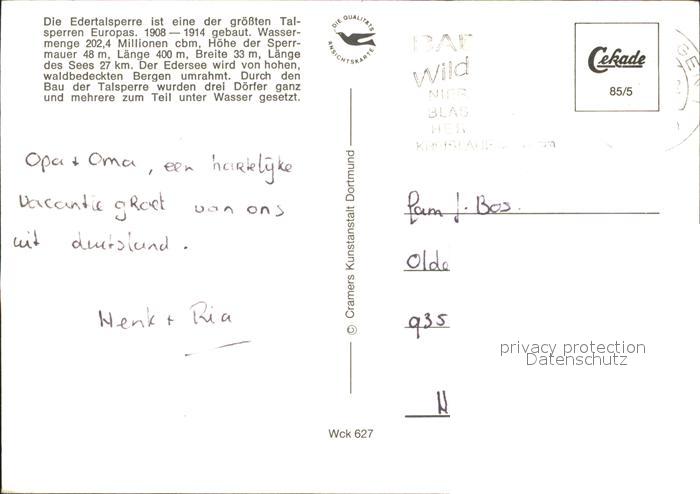 Die Edertalsperre ist eine der größten Tal-
sperren Europas. 1908 — 1914 gebaut. Wasser-
menge 202,4 Millionen cbm, Höhe der Sperr-
mauer 48 m, Länge 400 m, Breite 33 m, Länge
des Sees 27 km. Der Edersee wird von hohen,
waldbedeckten Bergen umrahmt. Durch den
Bau der Talsperre wurden drei Dörfer ganz
und mehrere zum Teil unter Wasser gesetzt.
DIE QUALITÄTS
ANSICHTSKARTE
BAD
Wild
Cekade
85/5
Opa + Oma, een hartelijke
vacantie groet van ons
uit duitsland.
Henk + Ria
© Cramers Kunstanstalt Dortmund
Wck 627
Fam J. Bos.
Olde
935
N
privacy protection
Datenschutz